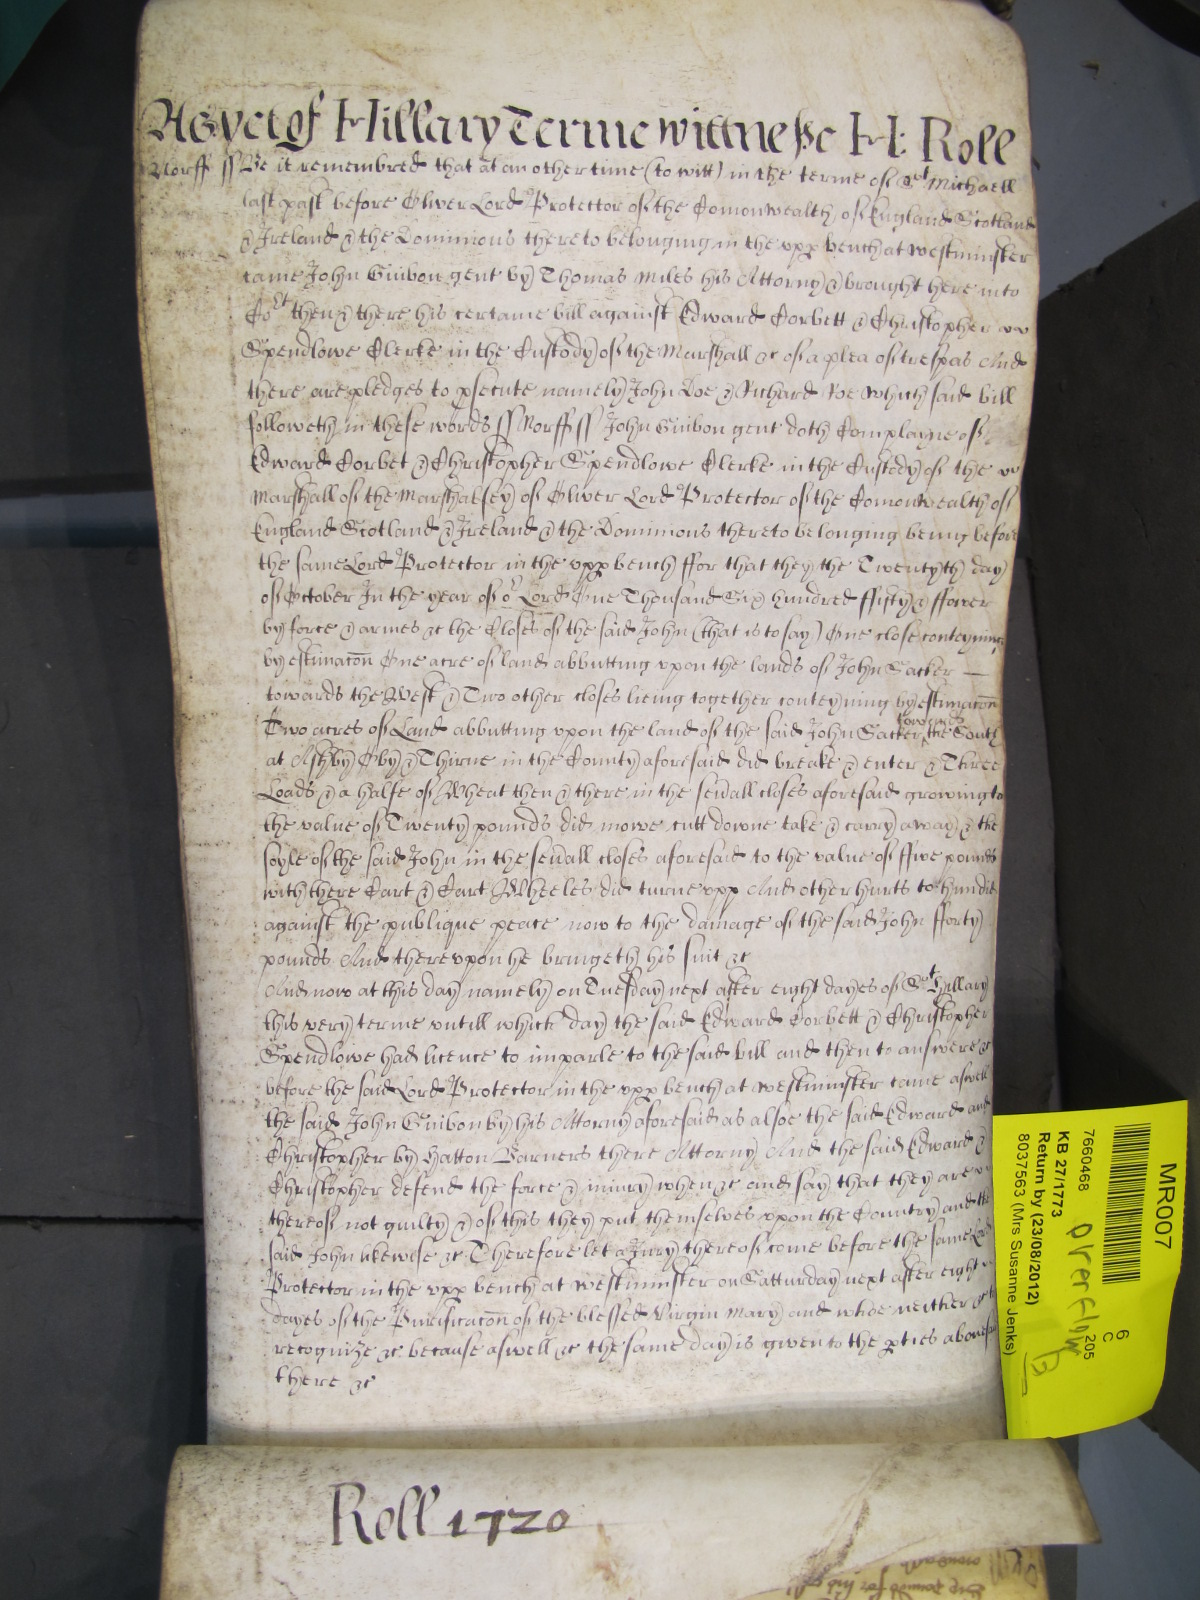 As yet of Hillary Terme wittnesse H: Roll
Norff ss Be it remembred that at an other time (to witt) in the terme of St Michaell
last past before Oliver Lord Protector of the Comonwealth of England Scotland
& Ireland & the Dominions thereto belonging in the upp bench at westminster
came John Guibon gent by Thomas Miles his Attorny & brought here into
Cort then & there his certaine bill against Edward Corbett & Christopher
Spendlowe Clerke in the Custody of the Marshall &c of a plea of trespas And
there are pledges to psecute namely John Doe & Richard Roe which said bill
followeth in these words ss Norff ss John Guibon gent doth Complayne of
Edward Corbet & Christopher Spendlowe Clerke in the Custody of the
Marshall of the Marshalsey of Oliver Lord Protector of the Comonwealth of
England Scotland & Ireland & the Dominions thereto belonging being before
the same Lord Protector in the upp bench ffor that they the Twentyth day
of October In the year of or Lord One Thousand Six hundred ffifty & ffower
by force & armes &c the Closes of the said John (that is to say) One close conteyning
by estimacon One acre of land abbutting upon the lands of John Sacker —
towards the West & Two other closes lieing together conteyning by estimacon
Two acres of Land abbutting upon the land of the said John Sacker towards the South
at Ashby Oby & Thirne in the County aforesaid did breake & enter & Three
Loads & a halfe of Wheat then & there in the sevall closes aforesaid growing to
the value of Twenty pounds did mowe cutt downe take & carry away & the
soyle of the said John in the sevall closes aforesaid to the value of ffive pounds
with there Cart & Cart Wheeles did turne upp And other hurts to him did
against the publique peace now to the damage of the said John fforty
pounds And thereupon he bringeth his suit &c
And now at this day namely on Tuesday next after eight dayes of St Hillary
this very terme untill which day the said Edward Corbett & Christopher
Spendlowe had licence to imparle to the said bill and then to answere &c
before the said Lord Protector in the upp bench at westminster came aswell
the said John Guibon by his Attorny aforesaid as alsoe the said Edward and
Christopher by Hatton Barners there Attorny And the said Edward &
Christopher defend the force & iniury when &c and say that they are
thereof not guilty & of this they put themselves upon the Country and the
said John likewise &c Therefore let a Jury thereof come before the same Lord
Protector in the upp bench at westminster on Satturday next after eight
dayes of the Purificacon of the blessed Virgin Mary and whoe neither &c
recognize &c because aswell &c the same day is given to the pties abovesd
there &c
Roll 1720
MR007
6
C
205
7660468
KB 27/1773
Return by (23/08/2012)
8037563 (Mrs Susanne Jenks)